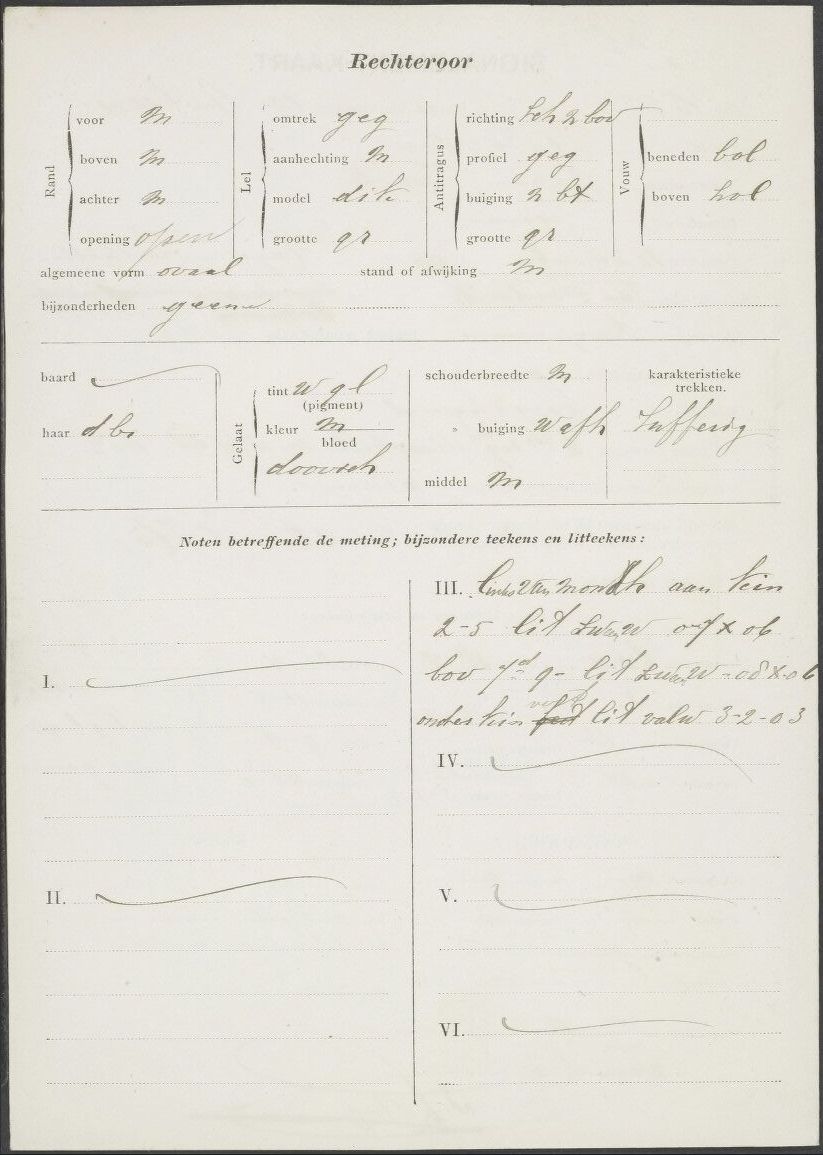 Rechteroor
Rand
voor m
boven m
achter m
opening open
Lel
omtrek geg
aanhechting m
model dik
grootte gr
Antitragus
richting
profiel geg
buiging
grootte gr
Vouw
beneden bol
boven hol
algemeene vorm ovaal stand of afwijking m
bijzonderheden geene
baard
haar d br
Gelaat
tint w gl
(pigment)
kleur m
bloed
schouderbreedte m
" buiging
middel m
karakteristieke
trekken.
Noten betreffende de meting; bijzondere teekens en litteekens:
I.
II.
III. aan kin
2-5 lit
bov lit
onder kin lit 3-2-03
IV.
V.
VI.